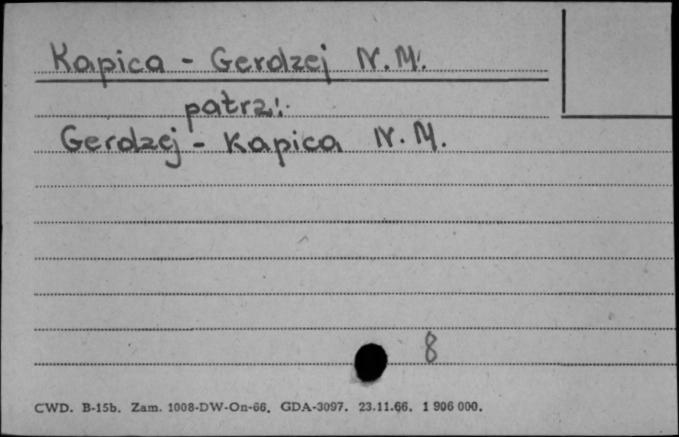 Kapica - Gerdzej N. M.
patrz:
Gerdzej - Kapica N. M.
8
CWD. B-15b. Zam. 1008-DW-On-66. GDA-3097. 23.11.66. 1 906 000.